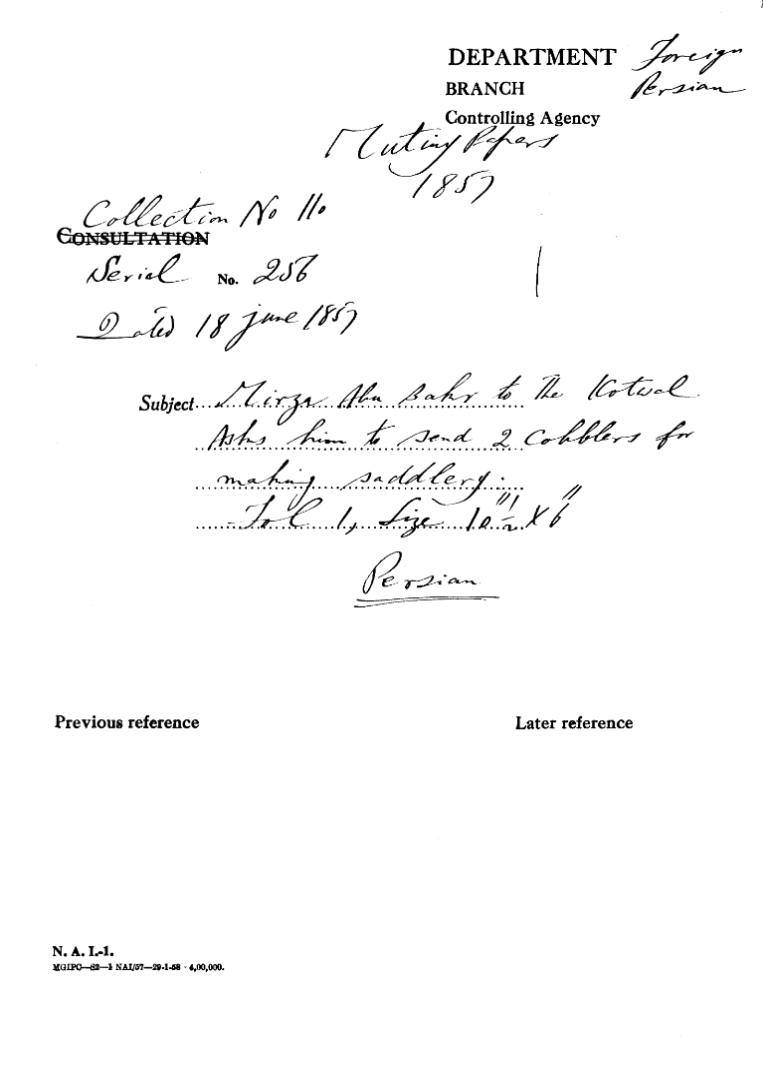 DEPARTMENT Foreign
BRANCH Persian
Controlling Agency
Mutiny Papers
1857
Collection No 110
CONSULTATION
Serial No. 256
Dated 18 june 1857
Subject Mirza Abu Bakr to the Kotwal
Asks him to send 2 Cobblers for
making saddlery.
Fol 1, Size 10 1/2" X 6"
Persian
Previous reference
Later reference
N. A. I.-1.
MGIPC—S2—1 NAI/57—29-1-58 - 4,00,000.